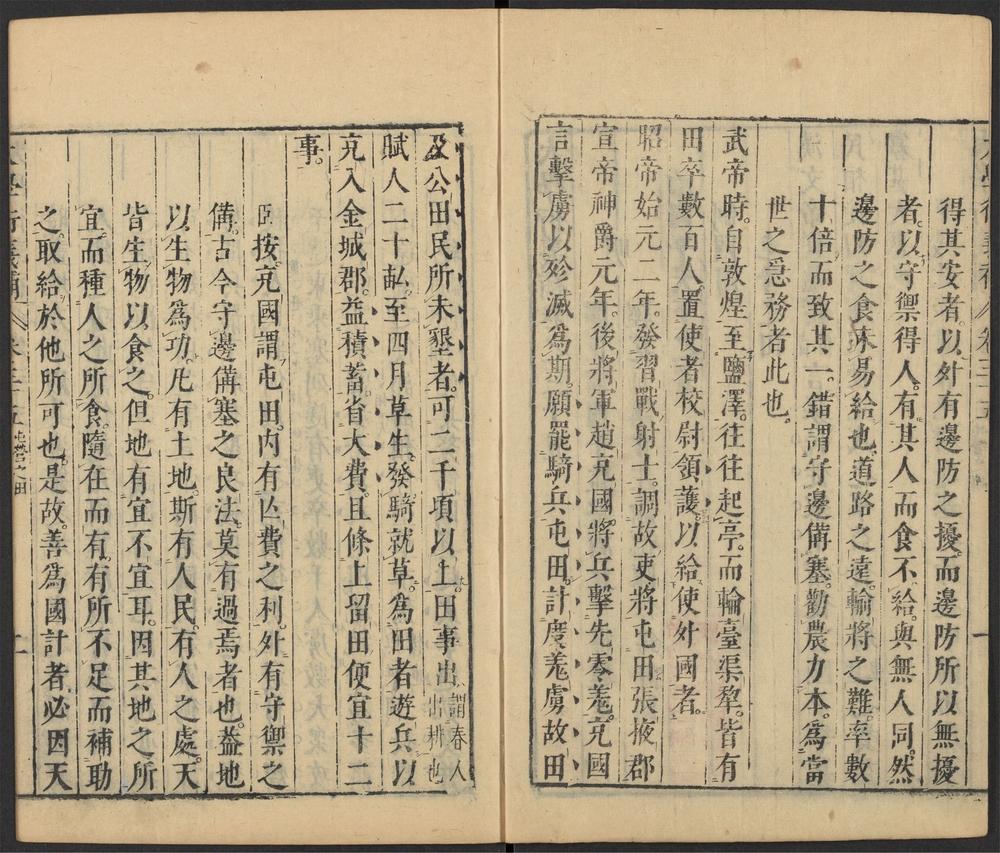 大學衍義補 卷三十五
得其安者以外有邊防之擾而邊防所以無擾
者以守禦得人有其人而食不給與無人同然
邊防之食未易給也道路之遠輸將之難率數
十倍而致其一錯謂守邊備塞勸農力本為當
世之急務者此也
武帝時自敦煌至鹽澤往往起亭而輪臺渠犂皆有
田卒數百人置使者校尉領護以給使外國者
昭帝始元二年發習戰射士調故吏將屯田張掖郡
宣帝神爵元年後將軍趙充國將兵擊先零羗充國
言擊虜以殄滅爲期願罷騎兵屯田計度羗虜故田
及公田民所未墾者可二千頃以上田事出謂春人出耕也
賦人二十畝至四月草生發騎就草為田者遊兵以
充入金城郡益積蓄省大費且條上留田便宜十二
事
臣按充國謂屯田内有亾費之利外有守禦之
備古今守邊備塞之良法莫有過焉者也蓋地
以生物爲功凡有土地斯有人民有人之處天
皆生物以食之但地有宜不宜耳因其地之所
宜而種人之所食隨在而有有所不足而補助
之取給於他所可也是故善爲國計者必因天
大學衍義補 卷三十五 屯營之田